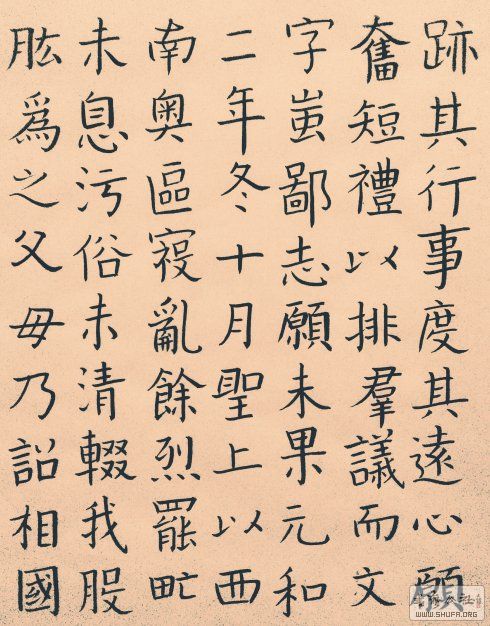 跡其行事度其遠心願
奮短禮以排羣議而文
字蚩鄙志願未果元和
二年冬十月聖上以西
南奧區寇亂餘烈罷甿
未息污俗未清輟我股
肱爲之父毋乃詔相國
WWW.SHUFA.ORG